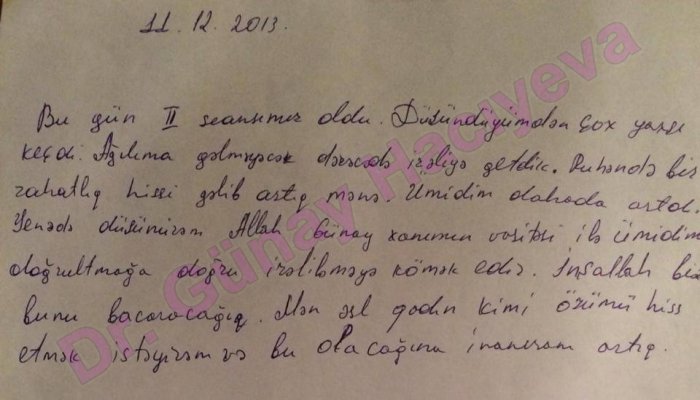 11. 12. 2013.
Bu gün II seansımız oldu. Düşündüyümdən çox yaxşı
keçdi. Ağılıma gəlməyəcək dərəcədə irəliyə getdik. Ruhəndə bir
rahatlıq hissi gəlib artıq mənə. Ümidim dahada artdı.
Yenədə düşünürəm Allah Günay xanımın vasitəsi ilə ümidimi
doğrultmağa doğru irəliləməyə kömək edir. İnşallah biz
bunu bacaracağıq. Mən əsl qadın kimi özümü hiss
etmək istəyirəm və bu olacağına inanıram artıq.
Dr. Günay Hacıyeva